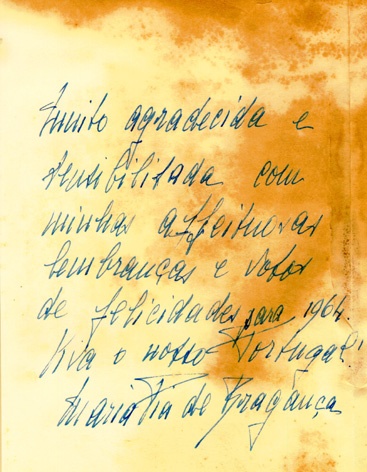 Muito agradecida e
sensibilisada com
minhas affeituosas
lembranças e votos
de felicidades para 1964.
Viva o nosso Portugal!
Maria Pia de Bragança